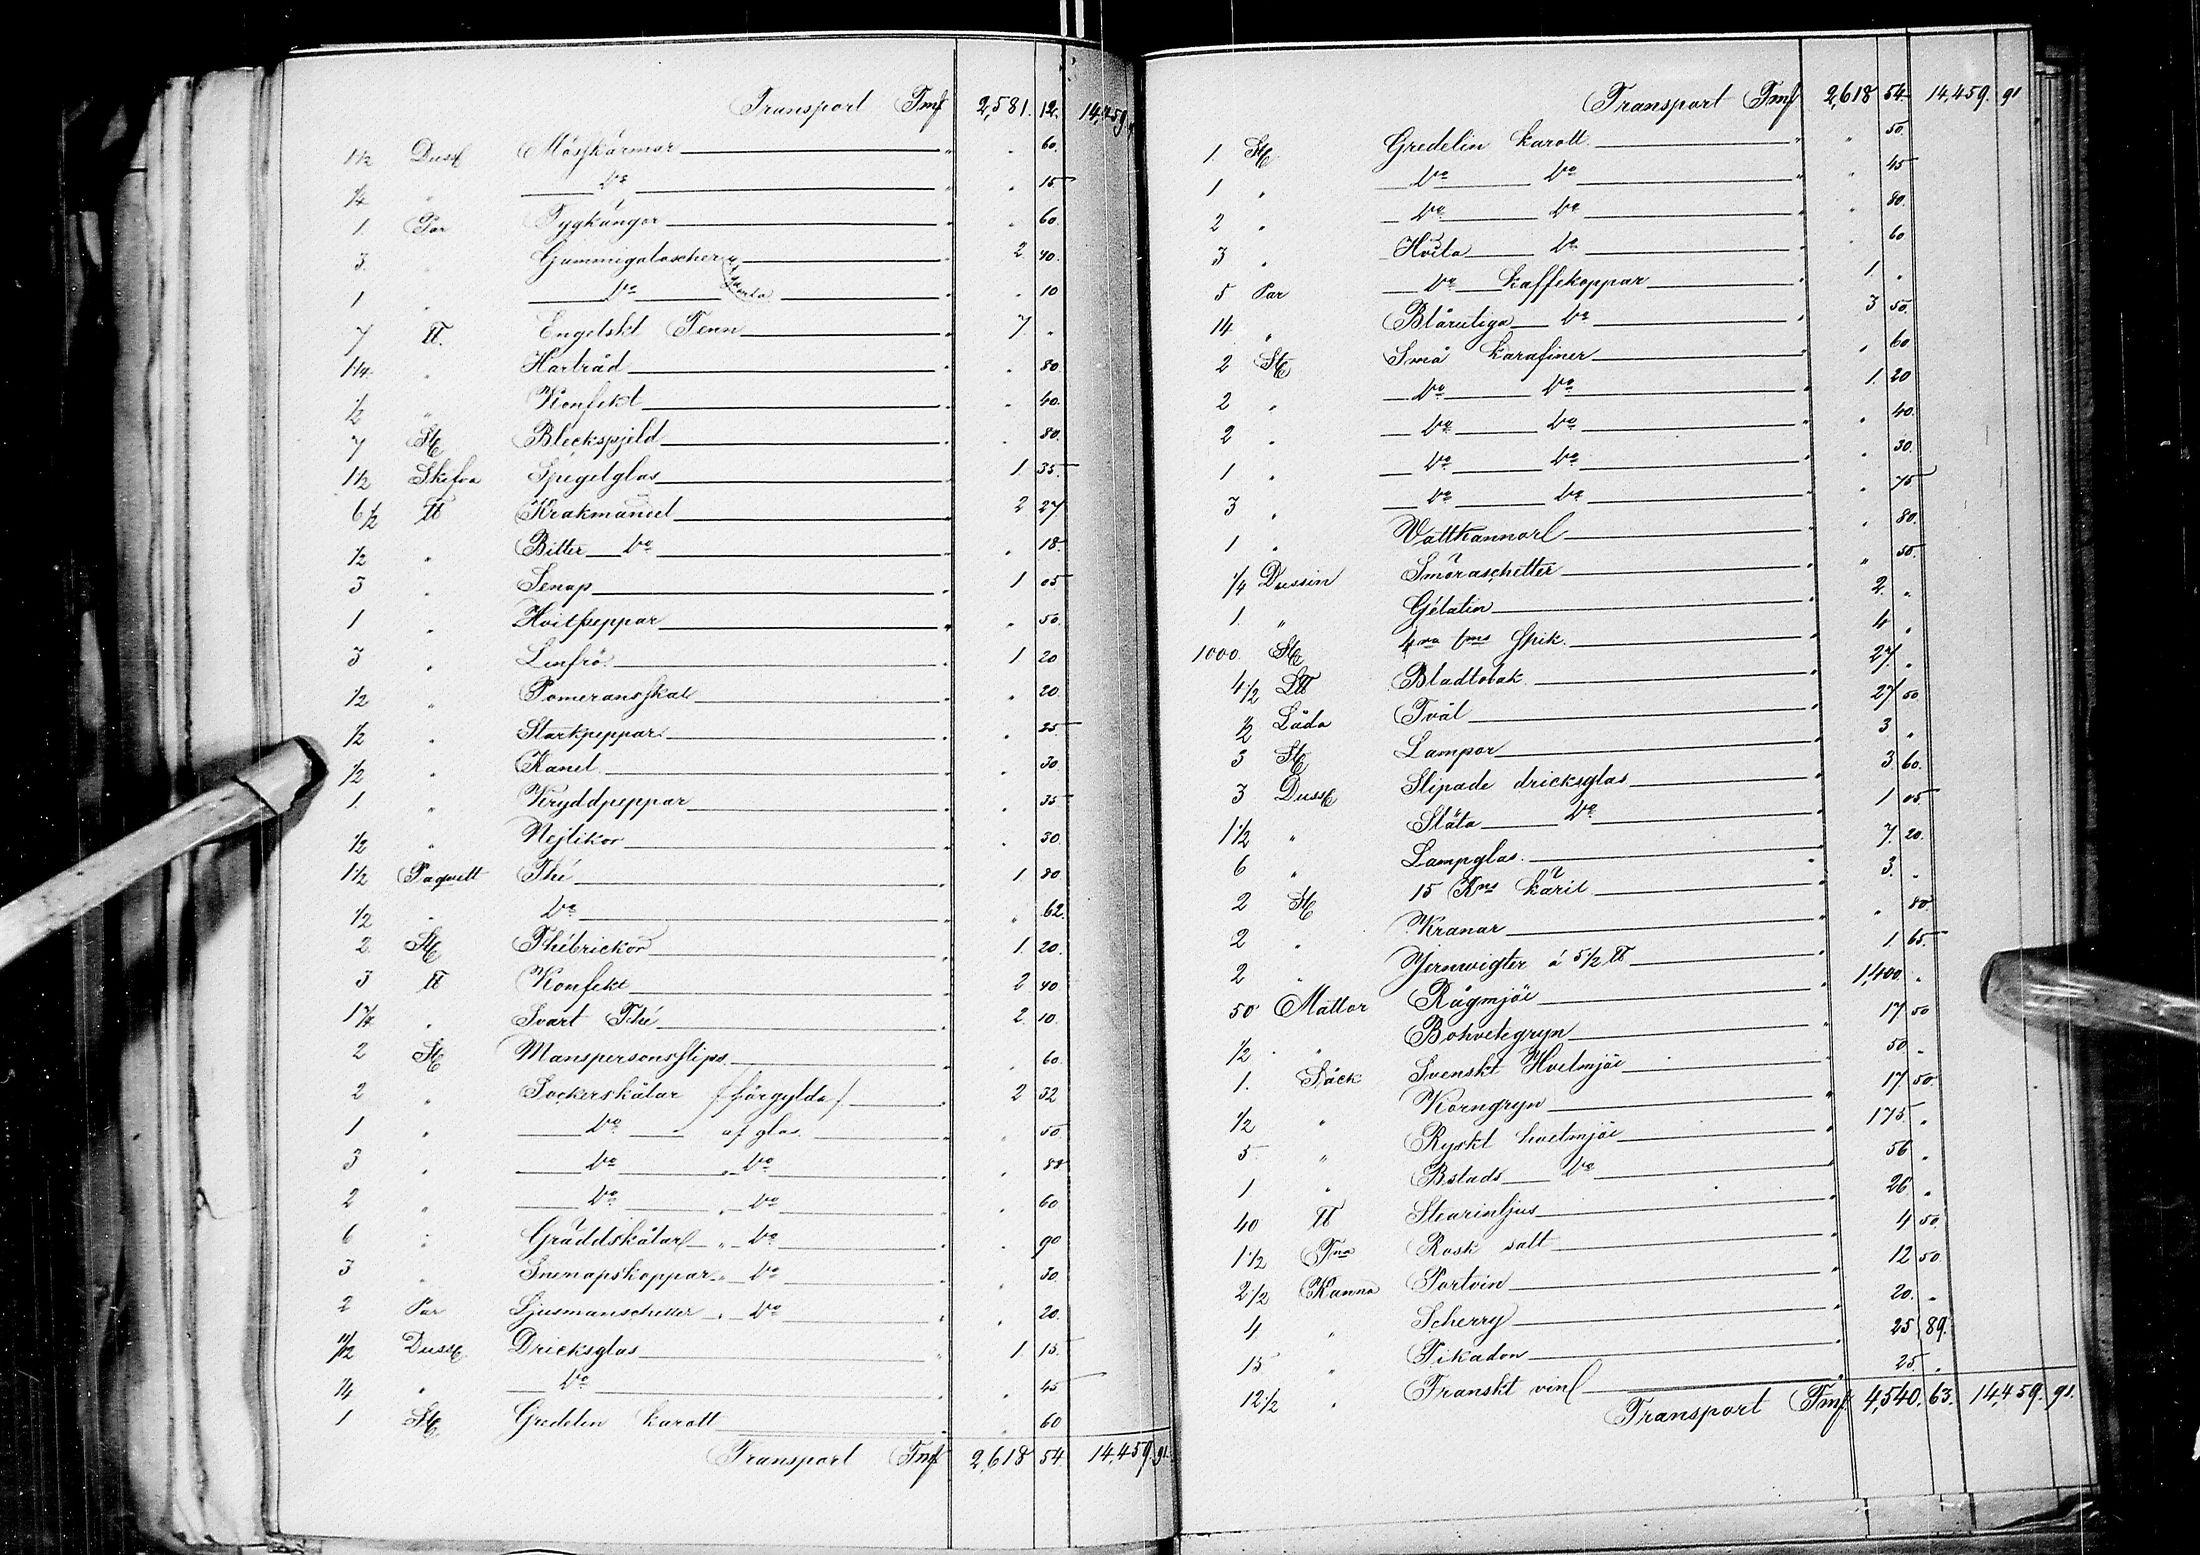 Transport Fmf 2,581. 12. 14,459
1 1/2 Duss Mösskärmar " " 60.
1/4 " D:o " " 15
1. Par Tygkängor " " 60.
3. " Gummigaloscher " 2. 40.
1 " D:o " " 10
7 ℔. Engelskt Tenn " 7. "
1 1/4 " Hartråd " " 80.
1/2 " Konfekt " " 40.
7 St Bleckspjeld " " 80.
1 1/2 Skifva Spegelglas " 1. 35
6 1/2 ℔ Krakmandel " 2 27
1/2 " Bitter D:o " " 18.
3 " Senap " 1 05
1 " Hvitpeppar " " 50.
3 " Linfrö " 1 20
1/2 " Pomeransskal " " 20
1/2 " Starkpeppar " " 25
1/2 " Kanel " " 30.
1 " Kryddpeppar " " 35
1/2 " Nejlikor " " 30.
1 1/2 Paquett Thé " 1 80
1/2 " D:o " " 62.
2. St Thébrickor " 1. 20.
3 ℔ Konfekt " 2 40
1 3/4 " Svart Thé " 2. 10.
2 St Manspersonsslips " " 60.
2 " Sockerskålar /förgylda/ " 2 32
1 " D:o af glas " " 50.
3 " D:o " D:o " " 88
2 " D:o " D:o " " 60
6 " Gräddskålar " D:o " " 90
3 " Snenapskoppar " D:o " " 30.
2 Par Ljusmanschetter " D:o " " 20.
11/12 Duss Dricksglas " 1 15.
1/4 " D:o " " 45
1 St Gredelin karott " " 60
Transport Fmf 2,618 54. 14,459. 91.
Transport Fmf 2,618 54 14,459. 91
1. St Gredelin karott " " 50.
1 " D:o D:o " " 45
2 " D:o D:o " " 80.
3 " Hvita D:o " " 60
5 Par D:o kaffekoppar " 1. "
14 " Blårutiga D:o " 3 50.
2 St Små karafiner " " 60
2 " D:o D:o " 1. 20
2 " D:o D:o " " 40.
1 " D:o D:o " " 30.
3 " D:o D:o " " 75
1 " Vattkannor " " 80.
1/4 Dussin Smöraschetter " " 50.
1. " Gélatin " 2. "
1000. St 4ra tms spik " 4 "
4 1/2 L℔ Bladtobak " 27 "
1/2 Låda Tvål " 27 50
3 St Lampor " 3 "
3 Duss Slipade dricksglas " 3. 60.
1 1/2 " Släta D:o " 1 05
6 " Lampglas " 7. 20.
2 St 15 Kns käril " 3. "
2 " Kranar " " 80.
2 " Jernvigter á 5 1/2 ℔ " 1. 65
50 Mattor Rågmjöl " 1,400. "
1/2 " Bohvetegryn " 17 50
1. Säck Svenskt Hvetmjöl " 50. "
1/2 " Korngryn " 17 50.
5 " Ryskt hvetmjöl " 175. "
1 " Bstads D:o " 56 "
40 ℔ Stearinljus " 26 "
1 1/2 Tna Rosk salt " 4 50.
2 1/2 Kanna Portvin " 12 50
4 " Scherry " 20. "
15 " Pikadon " 25 89.
12 1/2 " Franskt vin " 25. "
Transport Fmf 4,540. 63. 14,459. 91.